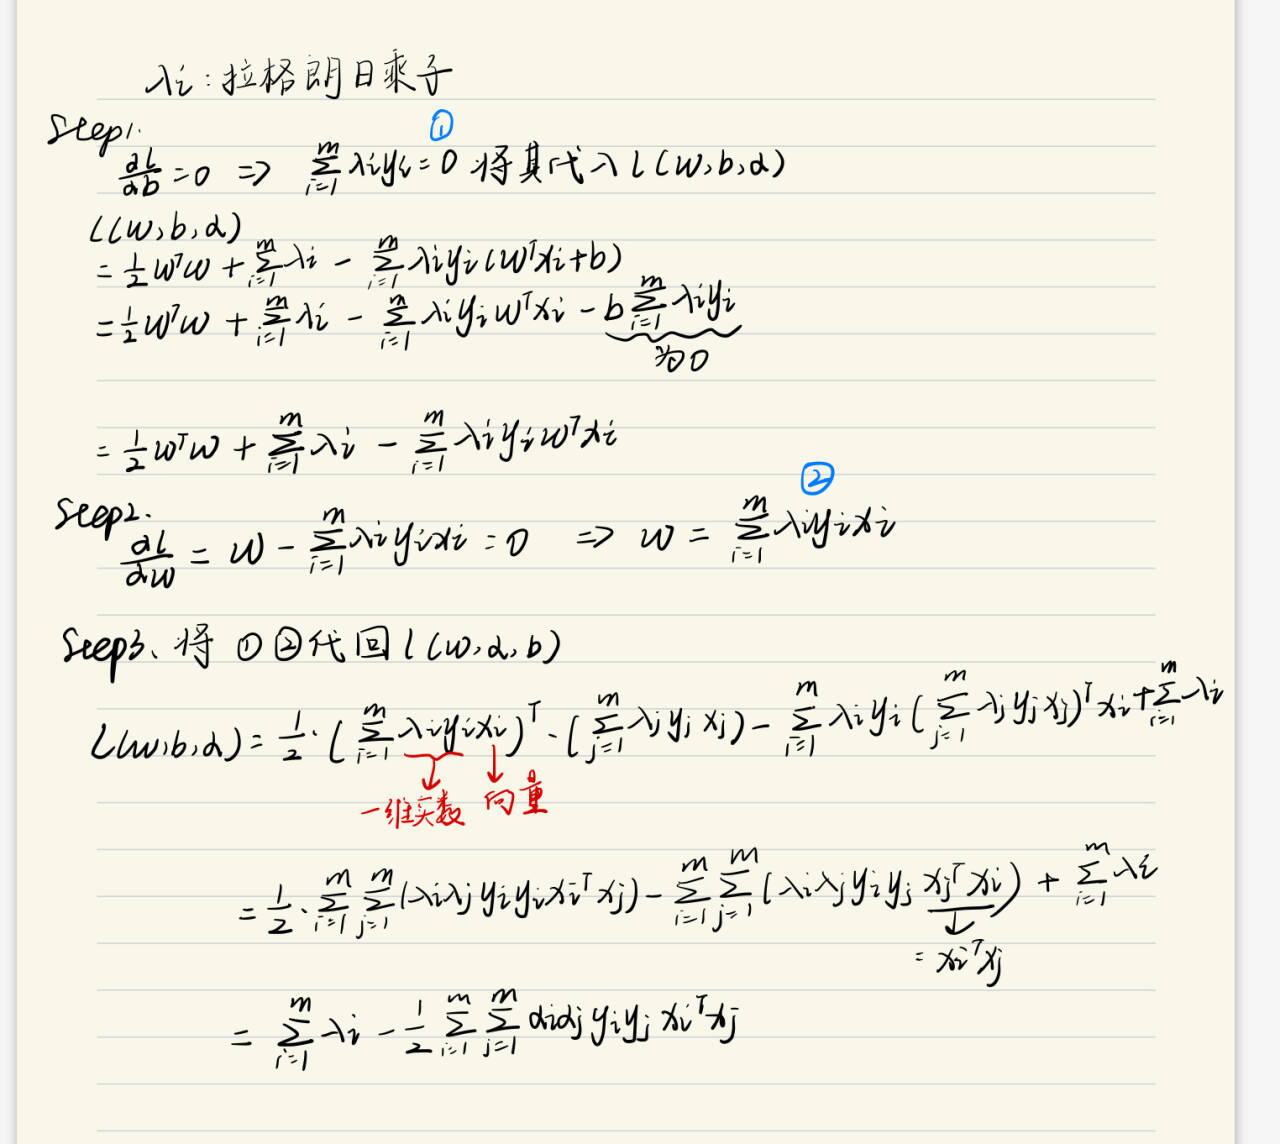 λi：拉格朗日乘子
Step1.
①
∂L/∂b = 0 => ∑_{i=1}^{m} λiyi = 0 将其代入 L(w,b,α)
L(w,b,α)
= 1/2 wᵀw + ∑_{i=1}^{m} λi - ∑_{i=1}^{m} λiyi(wᵀxi+b)
= 1/2 wᵀw + ∑_{i=1}^{m} λi - ∑_{i=1}^{m} λiyiwᵀxi - b∑_{i=1}^{m} λiyi
为0
= 1/2 wᵀw + ∑_{i=1}^{m} λi - ∑_{i=1}^{m} λiyiwᵀxi
②
Step2.
∂L/∂w = w - ∑_{i=1}^{m} λiyixi = 0 => w = ∑_{i=1}^{m} λiyixi
Step3、将 ①②代回 L(w,α,b)
L(w,b,α) = 1/2·(∑_{i=1}^{m} λiyixi)ᵀ·(∑_{j=1}^{m} λjyjxj) - ∑_{i=1}^{m} λiyi(∑_{j=1}^{m} λjyjxj)ᵀxi + ∑_{i=1}^{m} λi
一维实数 向量
= 1/2·∑_{i=1}^{m} ∑_{j=1}^{m} (λiλjyiyixiᵀxj) - ∑_{i=1}^{m} ∑_{j=1}^{m} (λiλjyiyjxjᵀxi) + ∑_{i=1}^{m} λi
= xiᵀxj
= ∑_{i=1}^{m} λi - 1/2 ∑_{i=1}^{m} ∑_{j=1}^{m} αiαjyiyjxiᵀxj